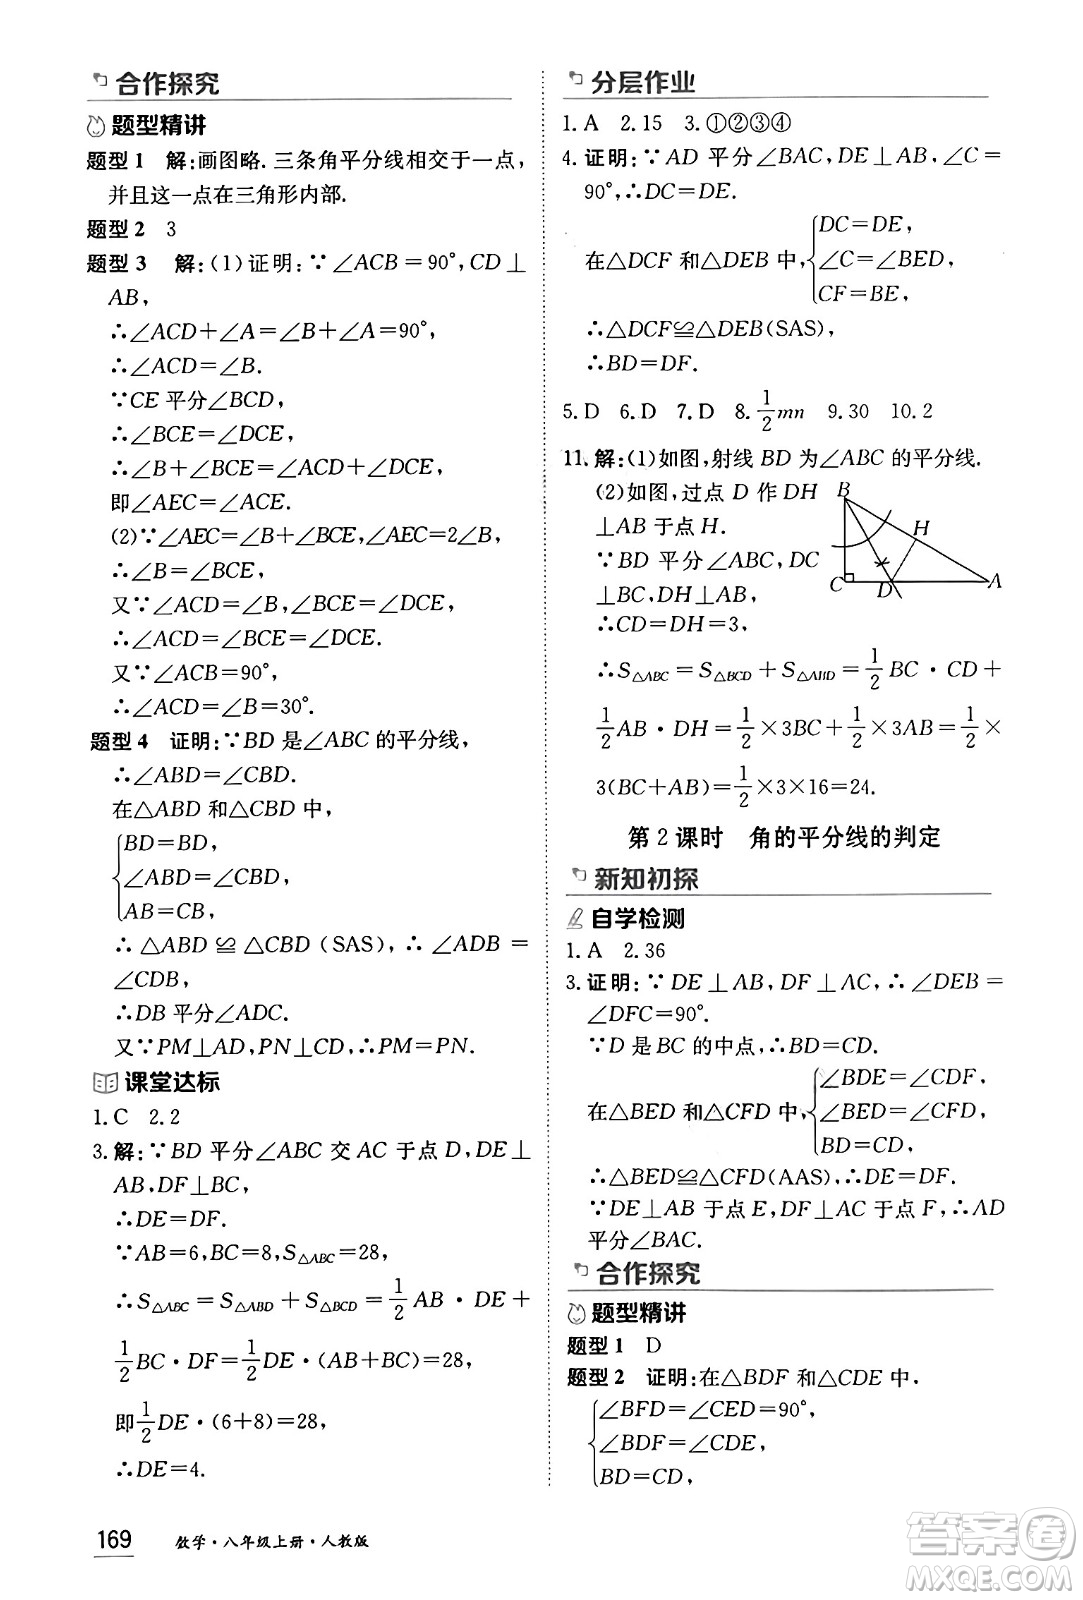 合作探究
题型精讲
题型 1 解:画图略.三条角平分线相交于一点,
并且这一点在三角形内部.
题型 2 3
题型 3 解:(1)证明:∵∠ACB=90°,CD⊥
AB,
∴∠ACD+∠A=∠B+∠A=90°,
∴∠ACD=∠B.
∵CE 平分∠BCD,
∴∠BCE=∠DCE,
∴∠B+∠BCE=∠ACD+∠DCE,
即∠AEC=∠ACE.
(2)∵∠AEC=∠B+∠BCE,∠AEC=2∠B,
∴∠B=∠BCE,
又∵∠ACD=∠B,∠BCE=∠DCE,
∴∠ACD=∠BCE=∠DCE.
又∵∠ACB=90°,
∴∠ACD=∠B=30°.
题型 4 证明:∵BD 是∠ABC 的平分线,
∴∠ABD=∠CBD.
在△ABD 和△CBD 中,
BD=BD,
∠ABD=∠CBD,
AB=CB,
∴△ABD≌△CBD(SAS),∴∠ADB=
∠CDB,
∴DB 平分∠ADC.
又∵PM⊥AD,PN⊥CD,∴PM=PN.
课堂达标
1.C 2.2
3.解:∵BD 平分∠ABC 交 AC 于点 D,DE⊥
AB,DF⊥BC,
∴DE=DF.
∵AB=6,BC=8,S△ABC=28,
∴S△ABC=S△ABD+S△BCD=1/2 AB·DE+
1/2 BC·DF=1/2 DE·(AB+BC)=28,
即 1/2 DE·(6+8)=28,
∴DE=4.
分层作业
1.A 2.15 3.①②③④
4.证明:∵AD 平分∠BAC,DE⊥AB,∠C=
90°,∴DC=DE.
在△DCF 和△DEB 中,
DC=DE,
∠C=∠BED,
CF=BE,
∴△DCF≌△DEB(SAS),
∴BD=DF.
5.D 6.D 7.D 8.1/2 mn 9.30 10.2
11.解:(1)如图,射线 BD 为∠ABC 的平分线.
(2)如图,过点 D 作 DH
⊥AB 于点 H.
∵BD 平分∠ABC,DC
⊥BC,DH⊥AB,
∴CD=DH=3,
B
H
C
D
A
∴S△ABC=S△BCD+S△ABD=1/2 BC·CD+
1/2 AB·DH=1/2×3BC+1/2×3AB=1/2×
3(BC+AB)=1/2×3×16=24.
第 2 课时 角的平分线的判定
新知初探
自学检测
1.A 2.36
3.证明:∵DE⊥AB,DF⊥AC,∴∠DEB=
∠DFC=90°.
∵D 是 BC 的中点,∴BD=CD.
在△BED 和△CFD 中,
∠BDE=∠CDF,
∠BED=∠CFD,
BD=CD,
∴△BED≌△CFD(AAS),∴DE=DF.
∵DE⊥AB 于点 E,DF⊥AC 于点 F,∴AD
平分∠BAC.
合作探究
题型精讲
题型 1 D
题型 2 证明:在△BDF 和△CDE 中,
∠BFD=∠CED=90°,
∠BDF=∠CDE,
BD=CD,
169 数学·八年级上册·人教版
答案圈
MXQE.COM